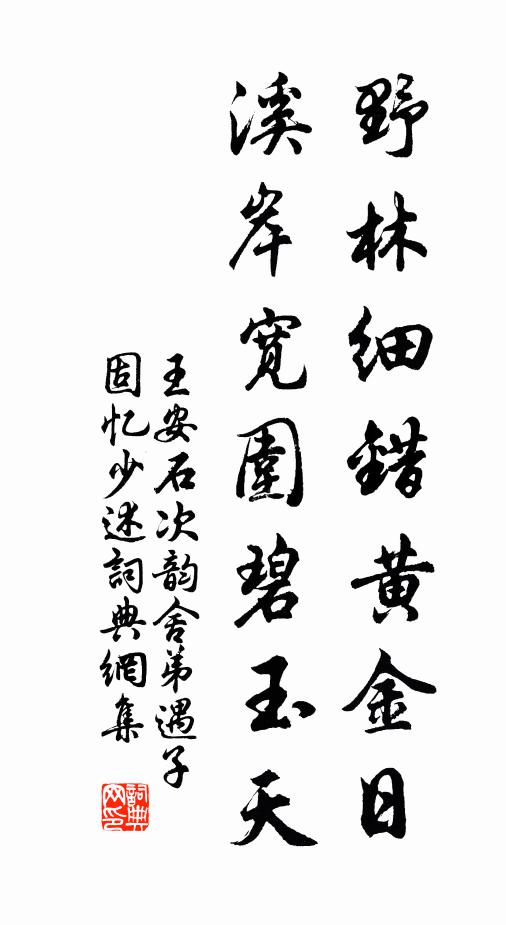 野林细錯黄金日
溪岸寬圍碧玉天
王安石次韵舍弟遇子
固忆少述詞典網集
詞典网印